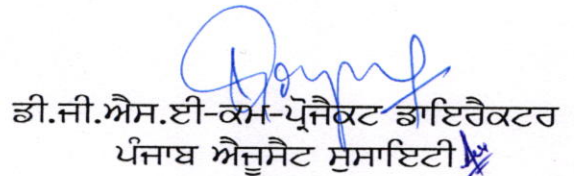 ਡੀ.ਜੀ.ਐਸ.ਈ-ਕਮ-ਪ੍ਰੋਜੈਕਟ ਡਾਇਰੈਕਟਰ
ਪੰਜਾਬ ਐਜੂਸੈਟ ਸੁਸਾਇਟੀ